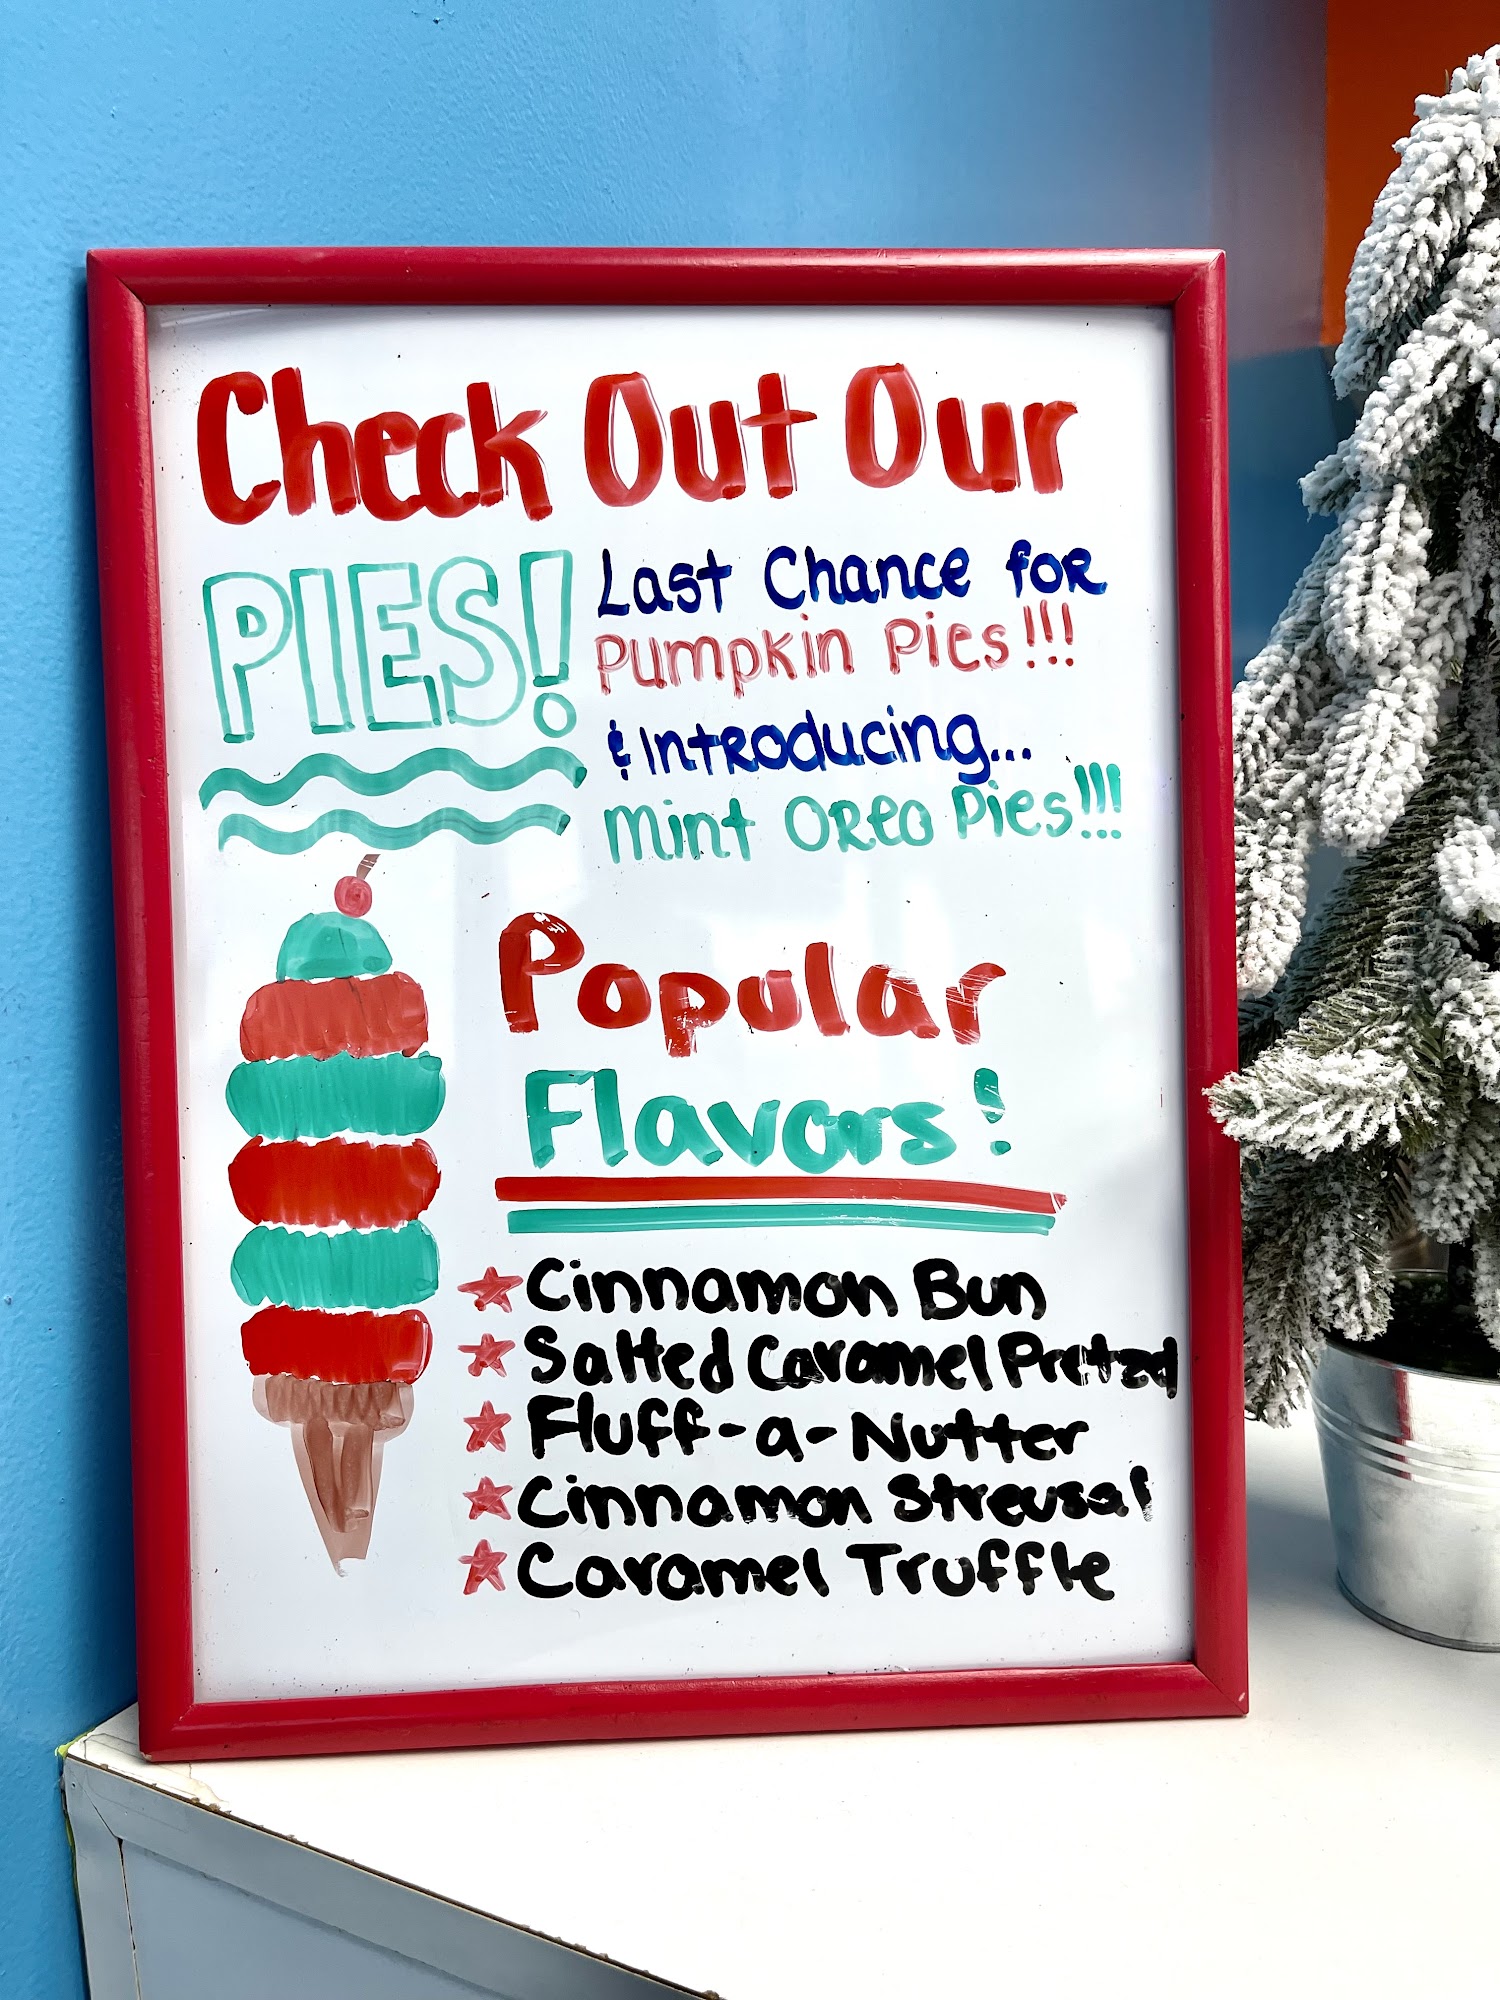 Check Out Our
PIES!
Last Chance for
Pumpkin Pies!!!
& Introducing...
Mint Oreo Pies!!!
Popular
Flavors!
Cinnamon Bun
Salted Caramel Pretzel
Fluff-a-Nutter
Cinnamon Streusal
Caramel Truffle